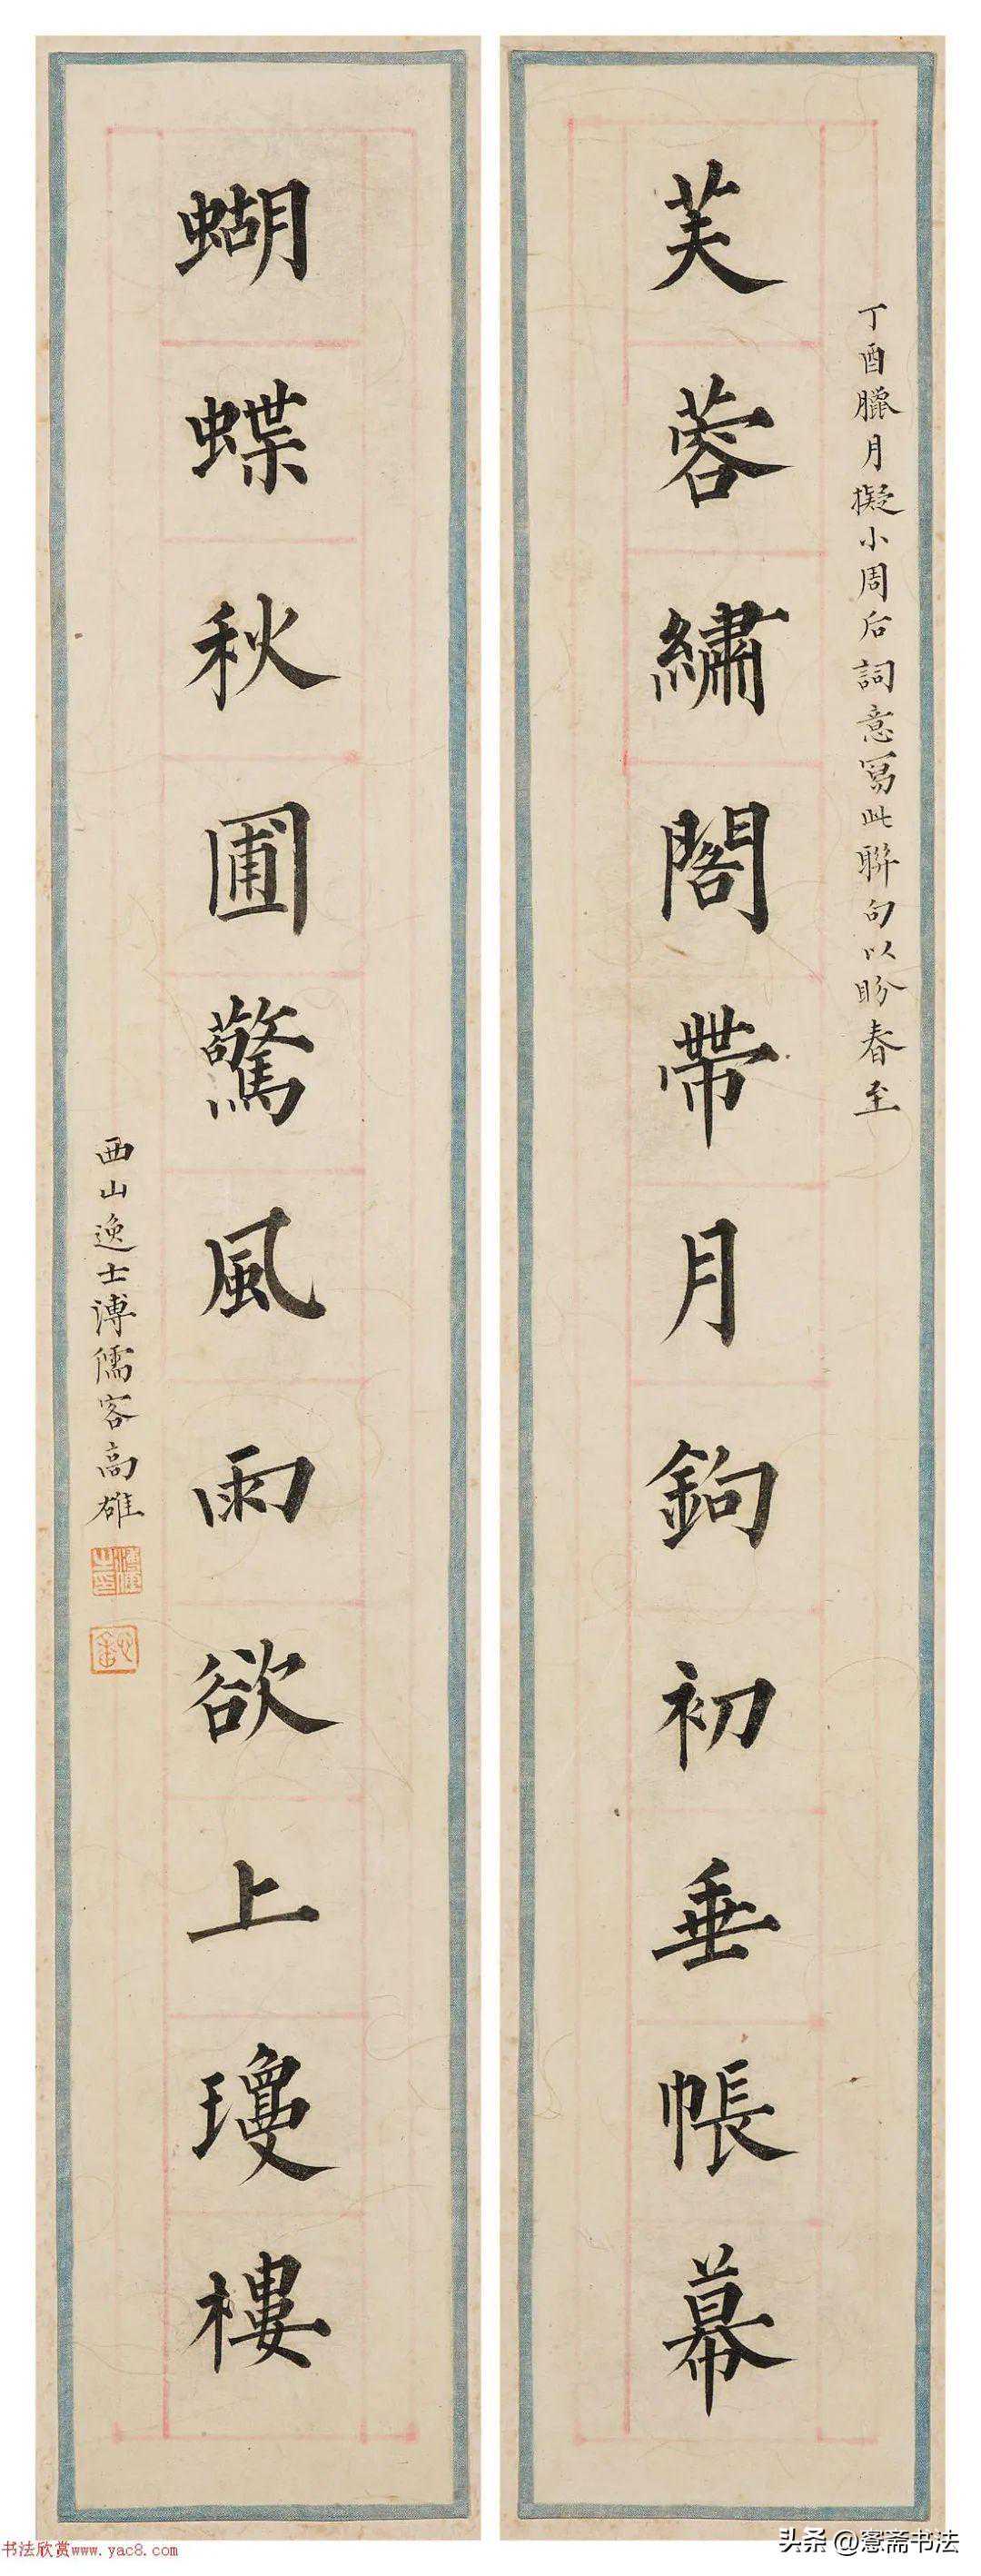 芙蓉繡閣帶月鉤初垂帳幕
丁酉臘月擬小周后詞意寫此聯句以盼春至
蝴蝶秋圃驚風雨欲上瓊樓
西山逸士溥儒客高雄
书法欣赏www.yac8.com
头条 @窓斋书法